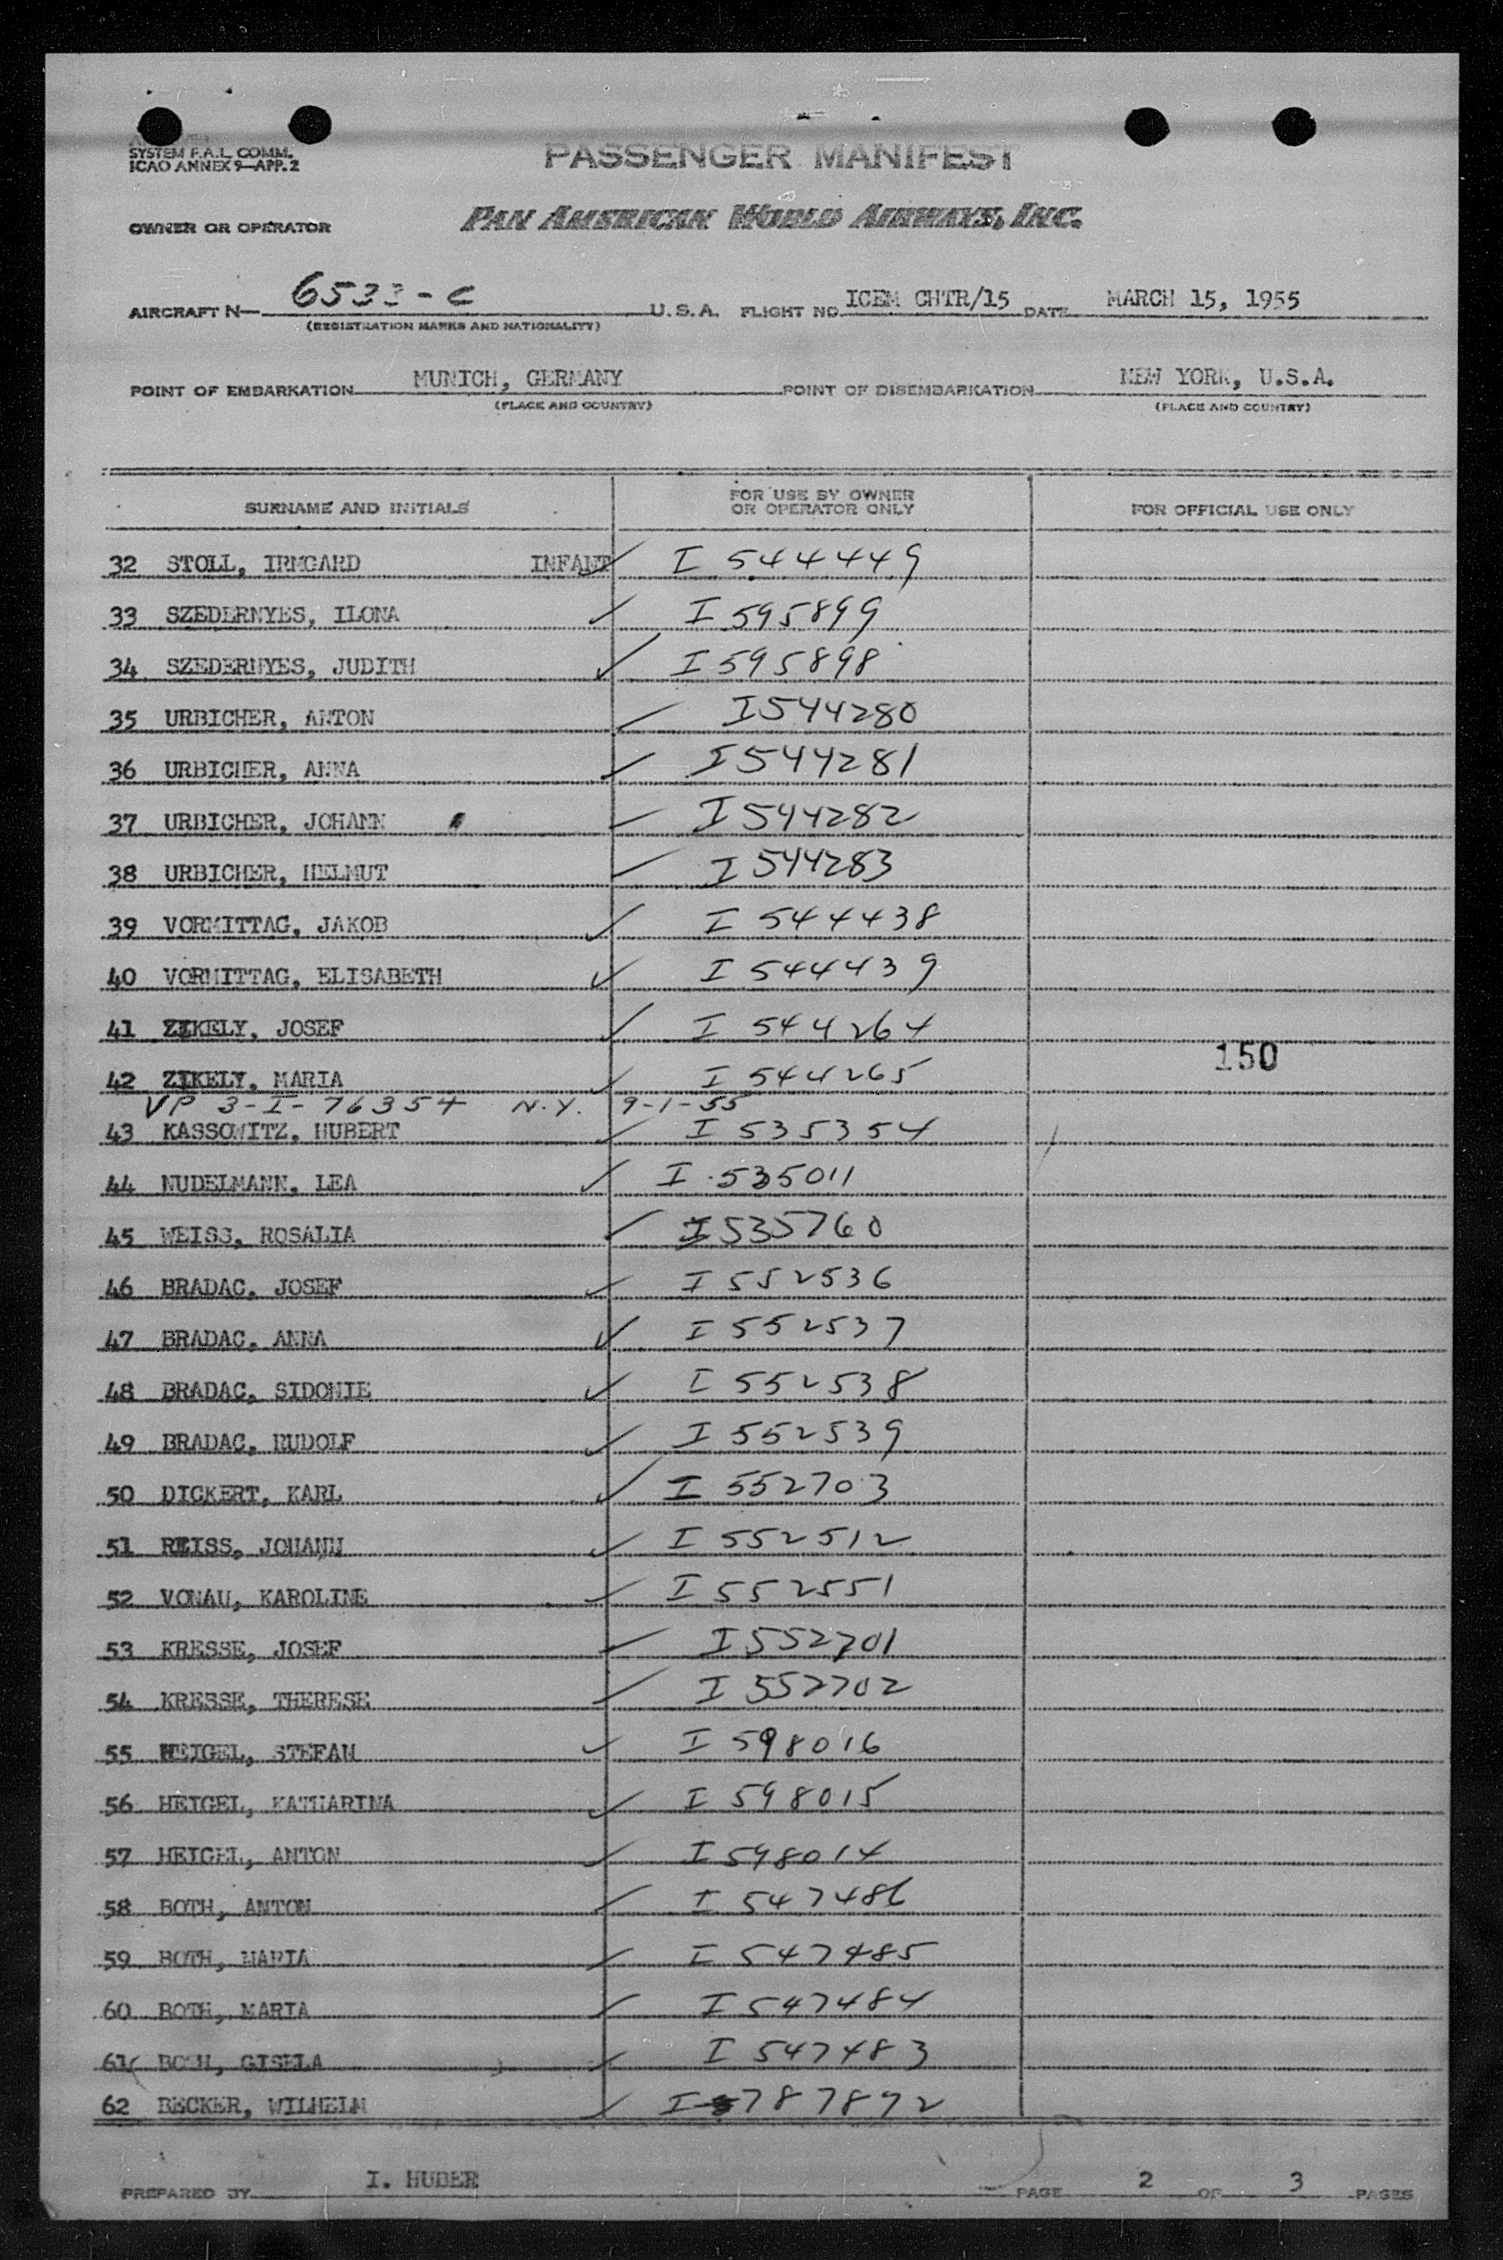 SYSTEM F.A.L. COMM.
ICAO ANNEX 9—APP. 2
PASSENGER MANIFEST
OWNER OR OPERATOR PAN AMERICAN WORLD AIRWAYS, INC.
AIRCRAFT N— 6533-C U.S.A. FLIGHT NO. ICEM CHTR/15 DATE MARCH 15, 1955
(REGISTRATION MARKS AND NATIONALITY)
POINT OF EMBARKATION MUNICH, GERMANY POINT OF DISEMBARKATION NEW YORK, U.S.A.
(PLACE AND COUNTRY) (PLACE AND COUNTRY)
SURNAME AND INITIALS FOR USE BY OWNER OR OPERATOR ONLY FOR OFFICIAL USE ONLY
32 STOLL, IRMGARD INFANT ✓ I 544449
33 SZEDERNYES, ILONA ✓ I 595899
34 SZEDERNYES, JUDITH ✓ I 595898
35 URBICHER, ANTON ✓ I544280
36 URBICHER, ANNA ✓ I544281
37 URBICHER, JOHANN ✓ I544282
38 URBICHER, HELMUT ✓ I 544283
39 VORMITTAG, JAKOB ✓ I 544438
40 VORMITTAG, ELISABETH ✓ I 544439
41 ZIKELY, JOSEF ✓ I 544264
150
42 ZIKELY, MARIA ✓ I 544265
VP 3-I-76354 N.Y. 9-1-55
43 KASSOWITZ, HUBERT ✓ I 535354
44 NUDELMANN, LEA ✓ I 535011
45 WEISS, ROSALIA ✓ I535760
46 BRADAC, JOSEF ✓ I 552536
47 BRADAC, ANNA ✓ I 552537
48 BRADAC, SIDONIE ✓ I 552538
49 BRADAC, RUDOLF ✓ I 552539
50 DICKERT, KARL ✓ I 552703
51 REISS, JOHANN ✓ I 552512
52 VONAU, KAROLINE ✓ I 552551
53 KRESSE, JOSEF ✓ I 552701
54 KRESSE, THERESE ✓ I 552702
55 HEIGEL, STEFAN ✓ I 598016
56 HEIGEL, KATHARINA ✓ I 598015
57 HEIGEL, ANTON ✓ I 598014
58 BOTH, ANTON ✓ I 547486
59 BOTH, MARIA ✓ I 547485
60 BOTH, MARIA ✓ I 547484
61 BOTH, GISELA ✓ I 547483
62 BECKER, WILHELM ✓ I 787892
PREPARED BY I. HUBER PAGE 2 OF 3 PAGES